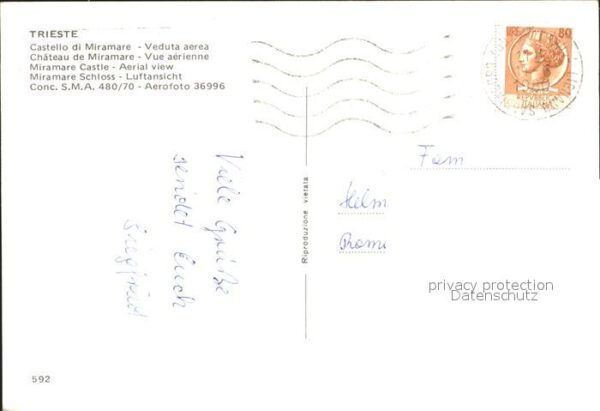 TRIESTE
Castello di Miramare - Veduta aerea
Château de Miramare - Vue aérienne
Miramare Castle - Aerial view
Miramare Schloss - Luftansicht
Conc. S.M.A. 480/70 - Aerofoto 36996
LIRE 80
Viele Grüße
sendet Euch
Siegfried
Riproduzione vietata
Fam
Helm
Promi
privacy protection
Datenschutz
592